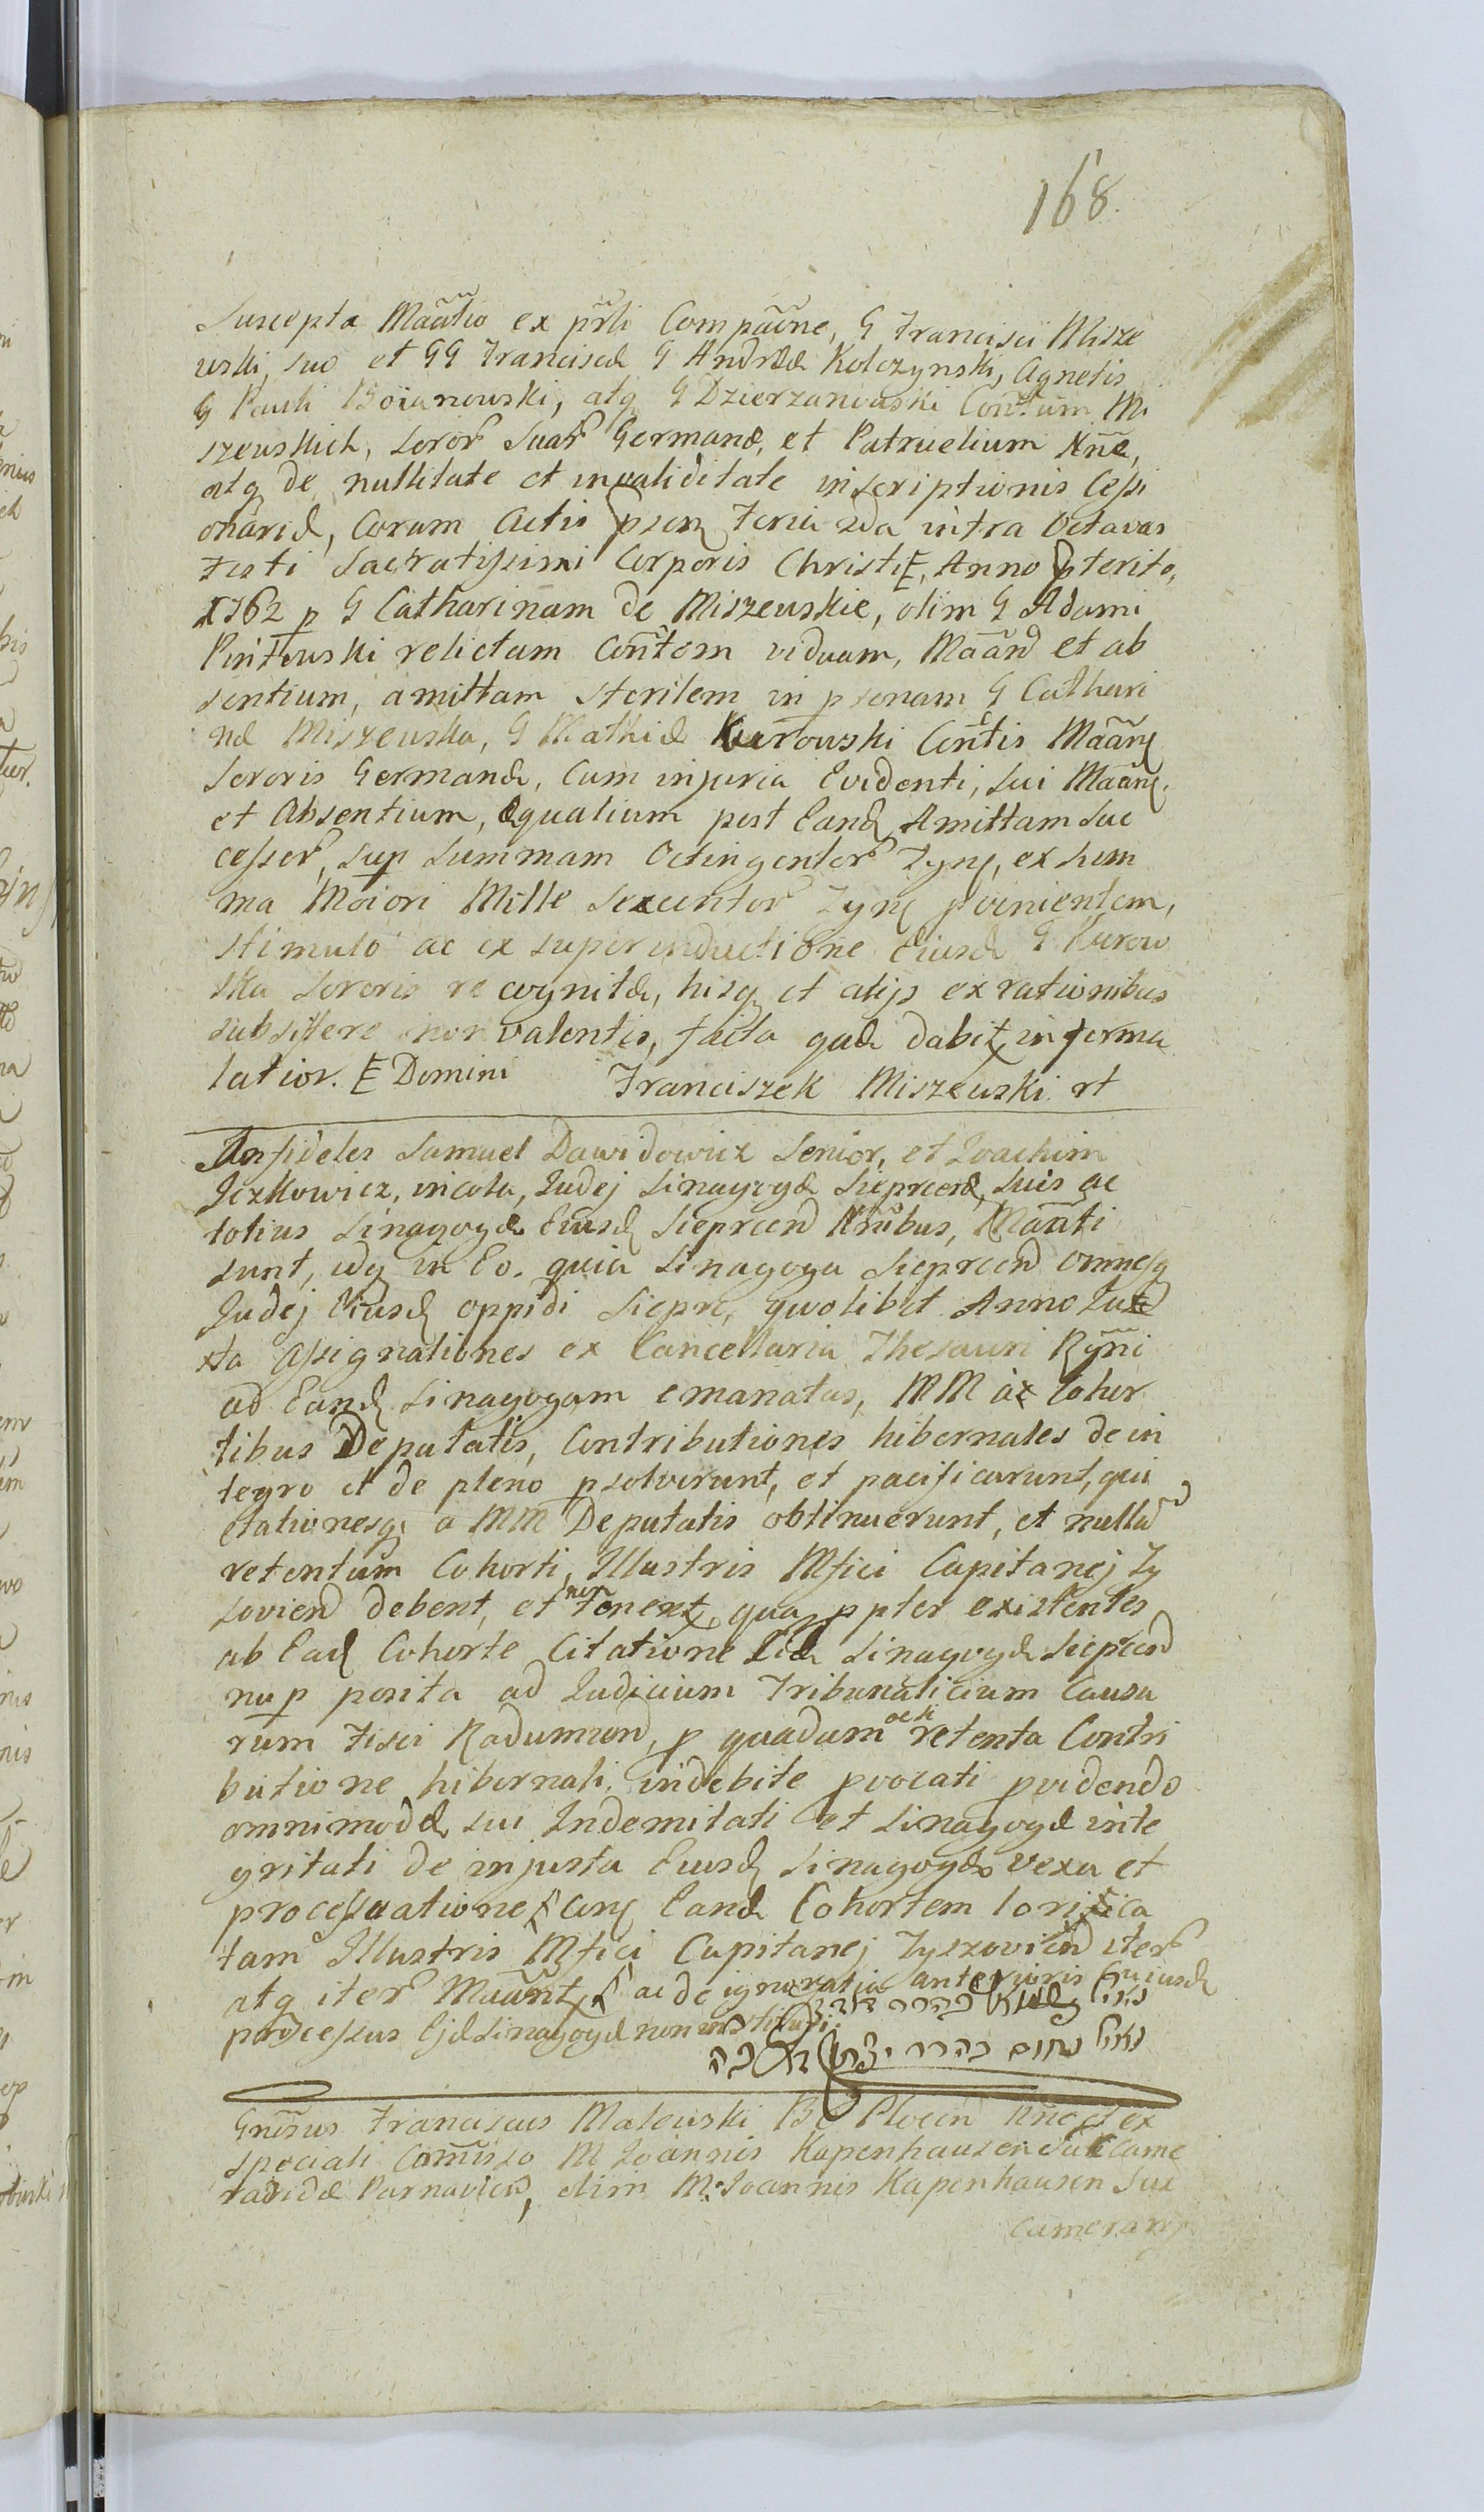 168.
Suscepta Maãtio ex pr̃li Compañne, G Francisci Misze
wski, suo et GG Franciscæ G Andreæ Kolczynski, Agnetis
G Pauli Boianowski, atq G Dzierzanowski Con̄tum Mi
szewskich, soror Suar Germanæ, et Patruelium Nn̄e,
atq de nullitate et invaliditate inscriptionis Cessi
onariæ, Coram Actis psen feria 2da intra Octavas
Festi Sacratissimi Corporis Christi, Anno pterito,
1762 p G Catharinam de Miszewskie, olim G Adami
relictam Con̄tem viduam, Maãnd et ab
sentium, amittam sterilem in psonam G Cathari
næ Miszewska, G Mathiæ Kurowski Con̄tis Maãn
Sororis Germanæ, Cum injuria Evidenti, sui Maãn.
et Absentium, æqualium post Eand Amittam Suc
cessor, sup summam Octingentor Zyn, ex sum
ma Maiori Mille Sexcentor Zyn pvenientem,
stimulo ac ex superinductione Eiusd G Kurow
ska Sororis recognitæ, hisq et alijs ex rationibus
subsistere non valentis, facta quæ dabit informa
latior. E Domini Franciszek Miszewski rt
Infideles Samuel Dawidowicz Senior, et Joachim
Jczkowicz, incola, Judej Sinagogæ Sieprcen, suis ac
totius Sinagogæ Eiusd Sieprcen Nn̄ibus, Maãnti
sunt, idq in Eo. quia Sinagoga Sieprcen omnesq
Judej Eiusd oppidi Sieprc, quolibet Anno Jux
xta Assignationes ex Cancellaria Thesauri Rgni
ad Eand Sinagogam emanatas, MM ac Cohor
tibus Deputatis, Contributiones hibernales de in
tegro et de pleno psolverunt, et pacificarunt, qui
etationesq a MM Deputatis obtinuerunt, et nullã
retentum Cohorti, Illustris Mfici Capitanej Zy
sovien debent, et non tenext, qua ppter existentes
ab Ead Cohorte Citatione Eidæ Sinagogæ Siepcen
nup posita ad Judicium Tribunalicium Causa
rum Fisci Radumien, p quadam ac si retenta Contri
butione hibernali indebite pvocati pvidendo
omnimodæ sui Indemitati et Sinagogæ inte
gritati de injusta Eiusd Sinagogæ vexa et
processuatione Con Eand Cohortem loricata
tam Illustris Mfici Capitanej Zyszovien iter
atq iter Maãnt ac de ignoratia anterioris Cuiusd
processus Ejd Sinagogæ non instituti.
נאום נחום בהרר
Gn̄sus Franciscus Malewski Plocen nn̄e et ex
speciali Com̄isso M Joannis Kapenhausen Suc Came
raridæ Parnavien, olim M. Joannis Kapenhausen Suc
Camerarij